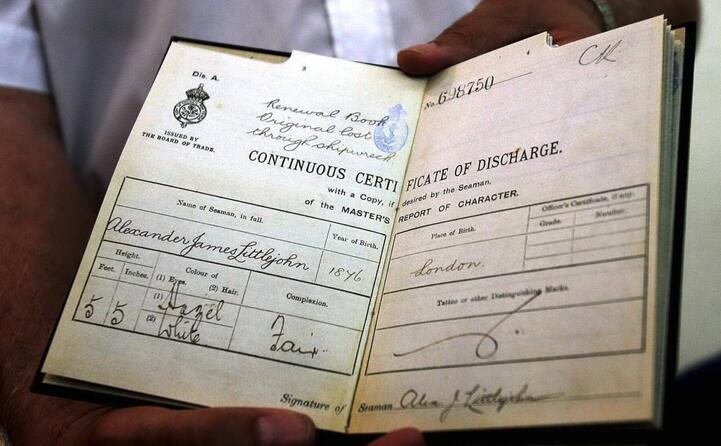 Dis. A.
3
4
CR
ISSUED BY
THE BOARD OF TRADE.
Renewal Book
Original lost
through shipwreck.
No. 698750
CONTINUOUS CERTIFICATE OF DISCHARGE.
with a Copy, if desired by the Seaman,
of the MASTER'S REPORT OF CHARACTER.
Name of Seaman, in full.
Year of Birth.
Place of Birth.
Officer's Certificate, if any.
Grade.
Number.
Alexander James Littlejohn
1876
London.
Height.
Feet.
Inches.
Colour of
(1) Eyes.
(2) Hair.
Complexion.
Tattoo or other Distinguishing Marks.
5
5
(1) Hazel
(2) White
Fair
Signature of Seaman
Alex J Littlejohn